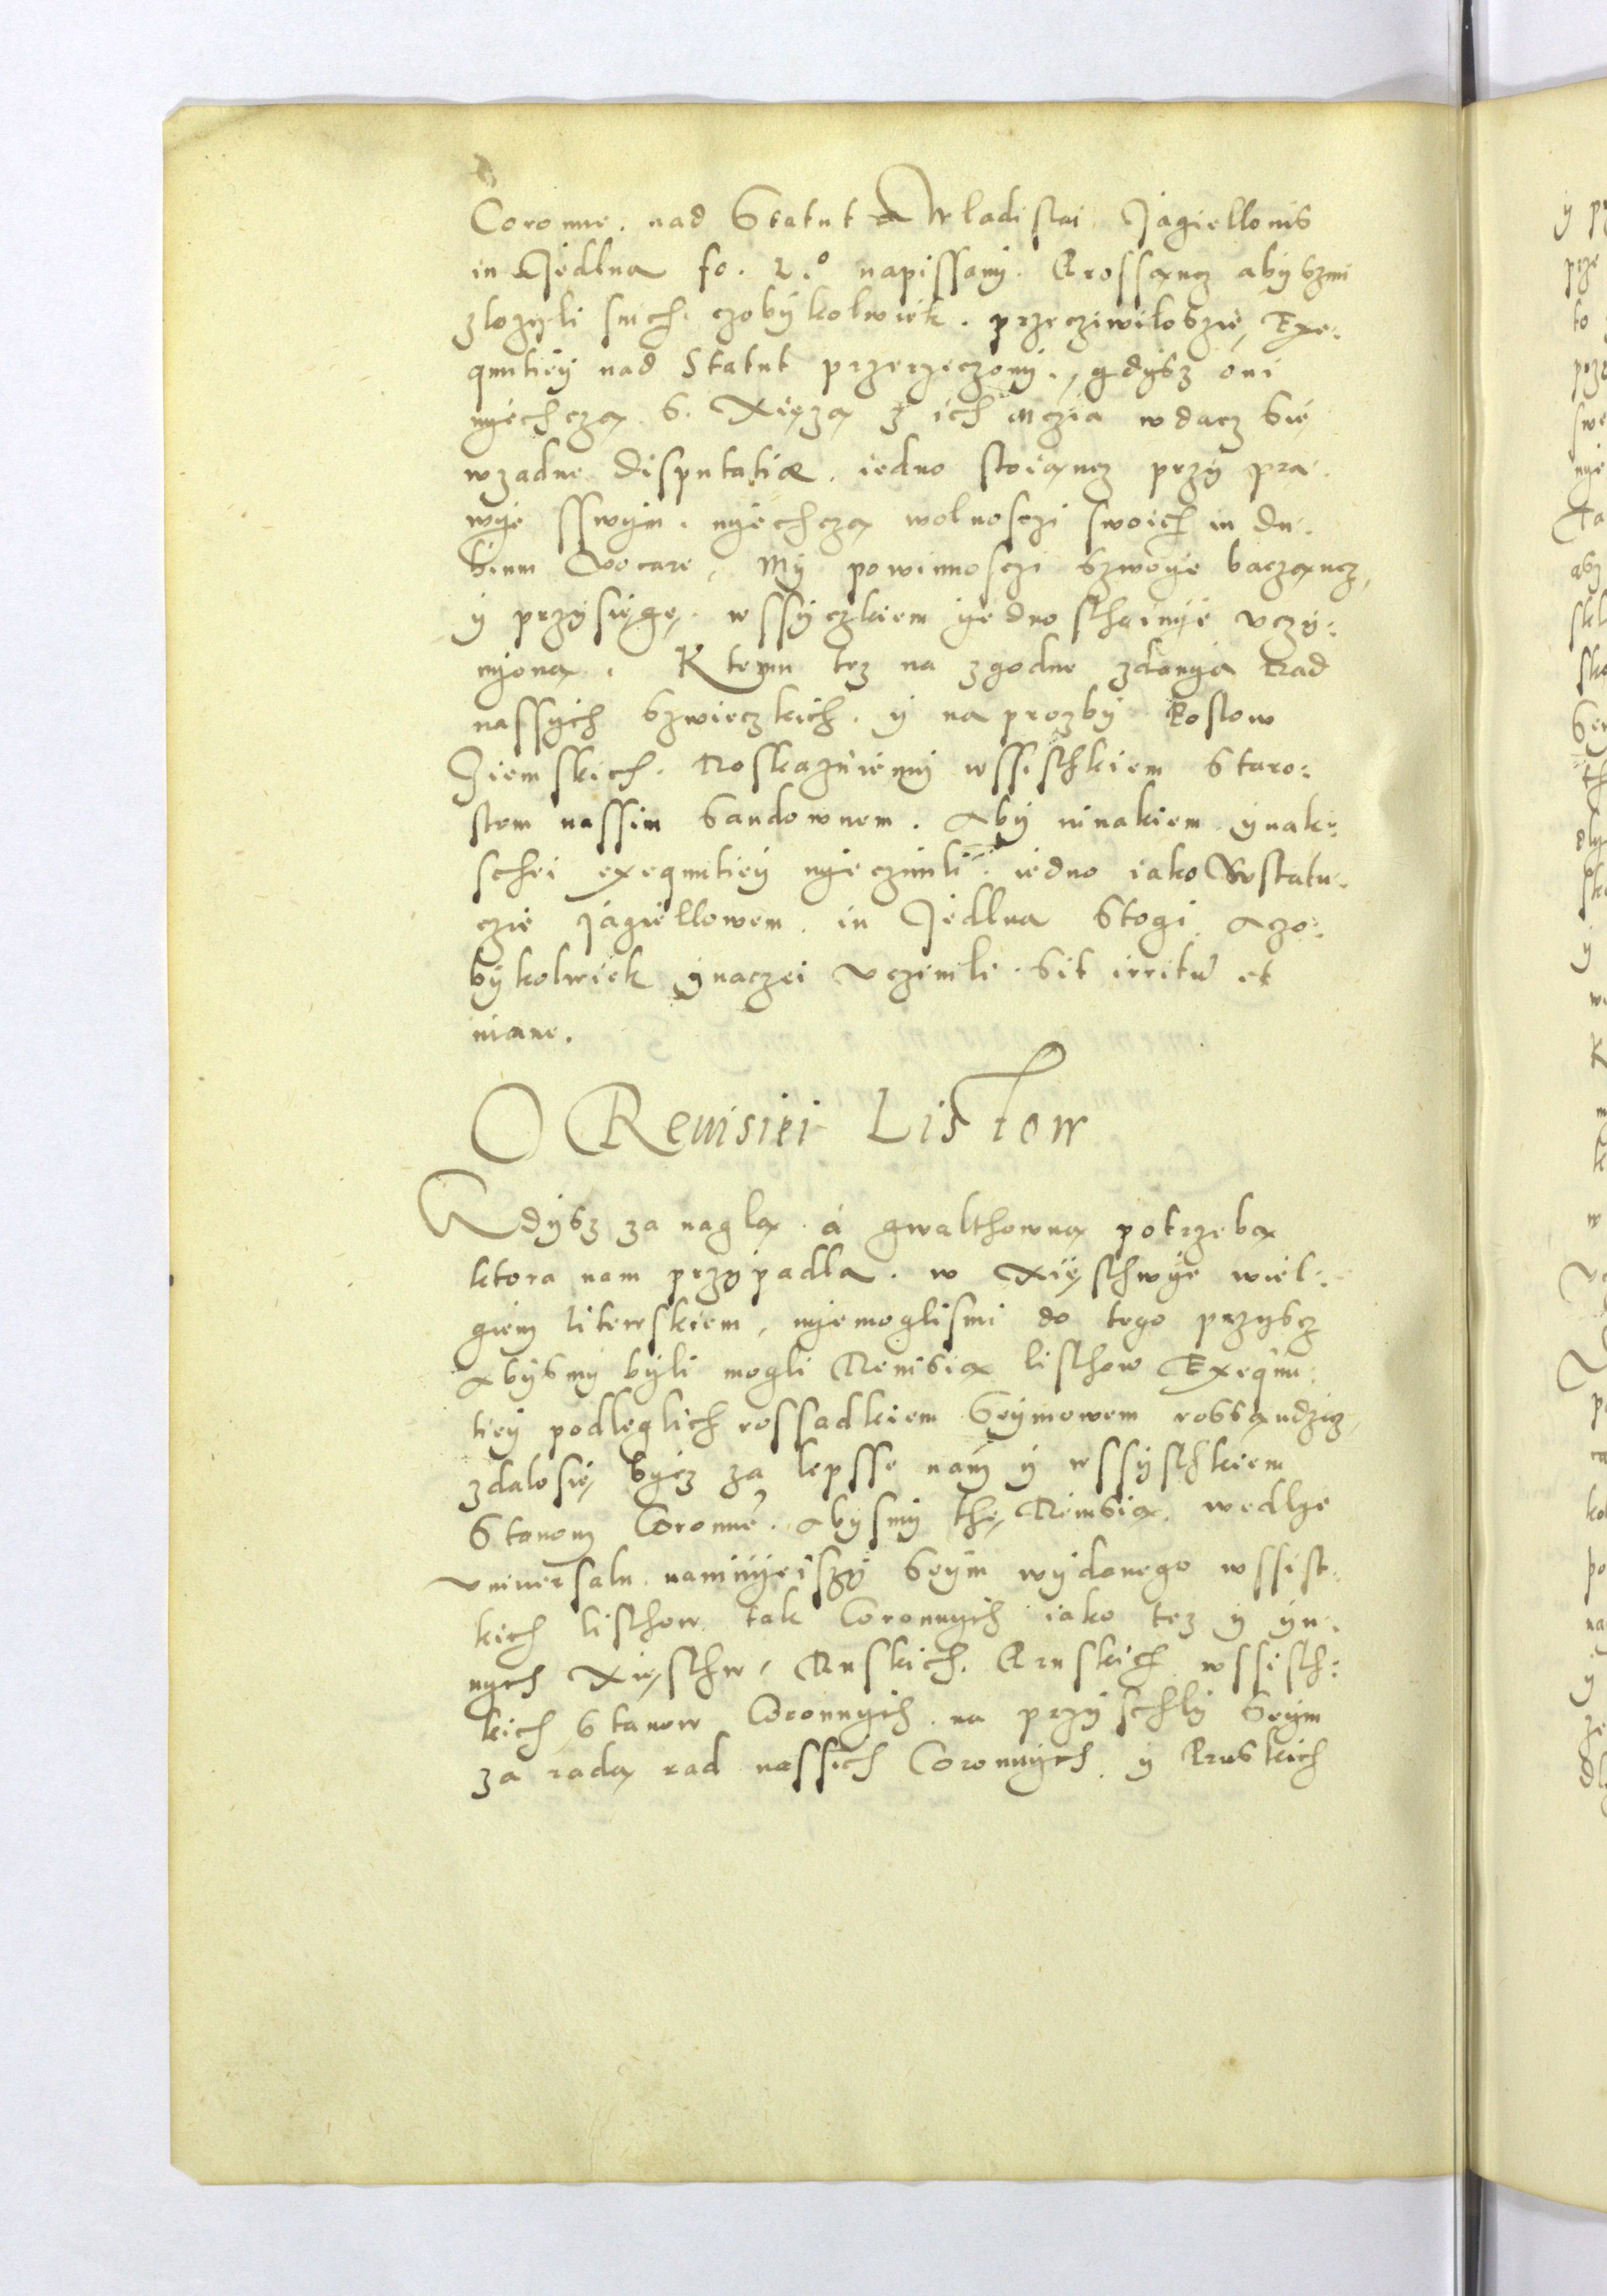 Coronne. nad Statut Wladislai Jagiellonis
in Jedlna fo. 2.° napissany. Prossancz abyszmi
zlozyli snich. czobykolwiek. przecziwiloszię, Exe:
qnutiey nad Statut przerzeczony., gdysz oni
nyechcza s. Xięza z ich mczia wdacz się
wzadne disputatiæ. iedno stoiancz przy pra.
wye sswym. nyechcza wolnosczi swoich in du.
bium vocare, My powinnosczi szwoye baczancz,
y przysięgę. wssyczkiem yednosthainye vczy:
myona. K temu tez na zgodne zdanya Rad
nassych szwieczkich. y na prozby Poslow
Ziemskich. Roskazuiemy wssisthkiem Staro:
stom nassim Sandownem. aby ninakiem ynak:
schei exequutiey nyeczinili. iedno iako w statu.
czie Jagiellowem. in Jedlna stogi aczo:
bykolwiek ynaczei vczinili. sit irritū et
inane.
O Reuisiei Listow
Gdysz za nagla. a gwalthowna potrzeba
ktora nam przypadla. w Xięsthwye wiel:
giem litewskiem, nyemoglismi do tego przyscz
abysmy byli mogli Reuisia listhow Exequu:
tiey podleglich rossadkiem Seymowem rossandzicz,
zdalosię bycz za lepsse nam y wssysthkiem
Stanom Coronne. abysmy thę Reuisia. wedlze
vniuersalu. naminyeiszy Seym wydanego wssist:
kich listhow tak Coronnych iako tez y yn.
nych Xięsthw, Ruskich. Pruskich wssisth:
kich Stanow Coronnych. na przyschly Seym
za rada rad nassich Coronnych. y Pruskich